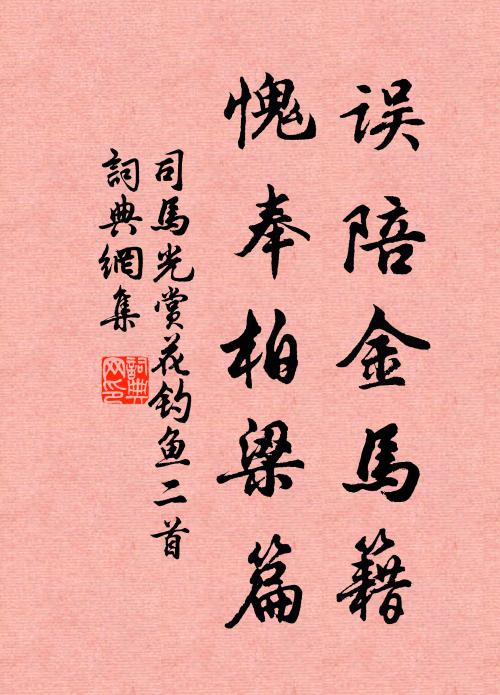 误陪金馬籍
愧奉柏梁篇
司馬光赏花钓鱼二首
詞典網集
詞典網印